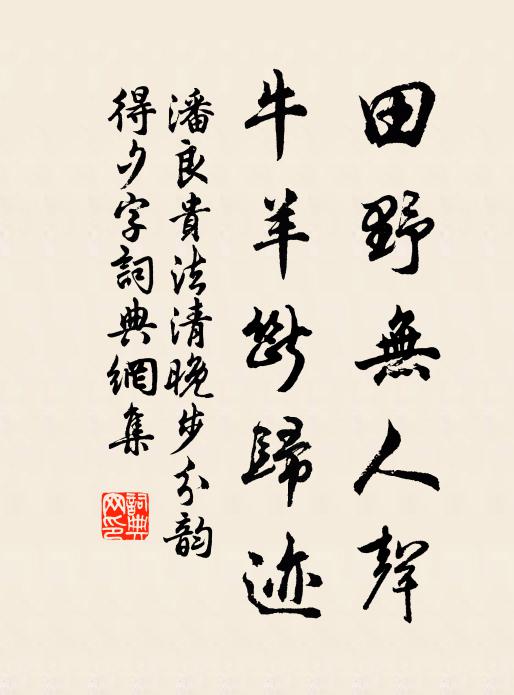 田野無人聲
牛羊斷歸迹
潘良貴法清晚步分韵
得夕字詞典網集
詞典网印